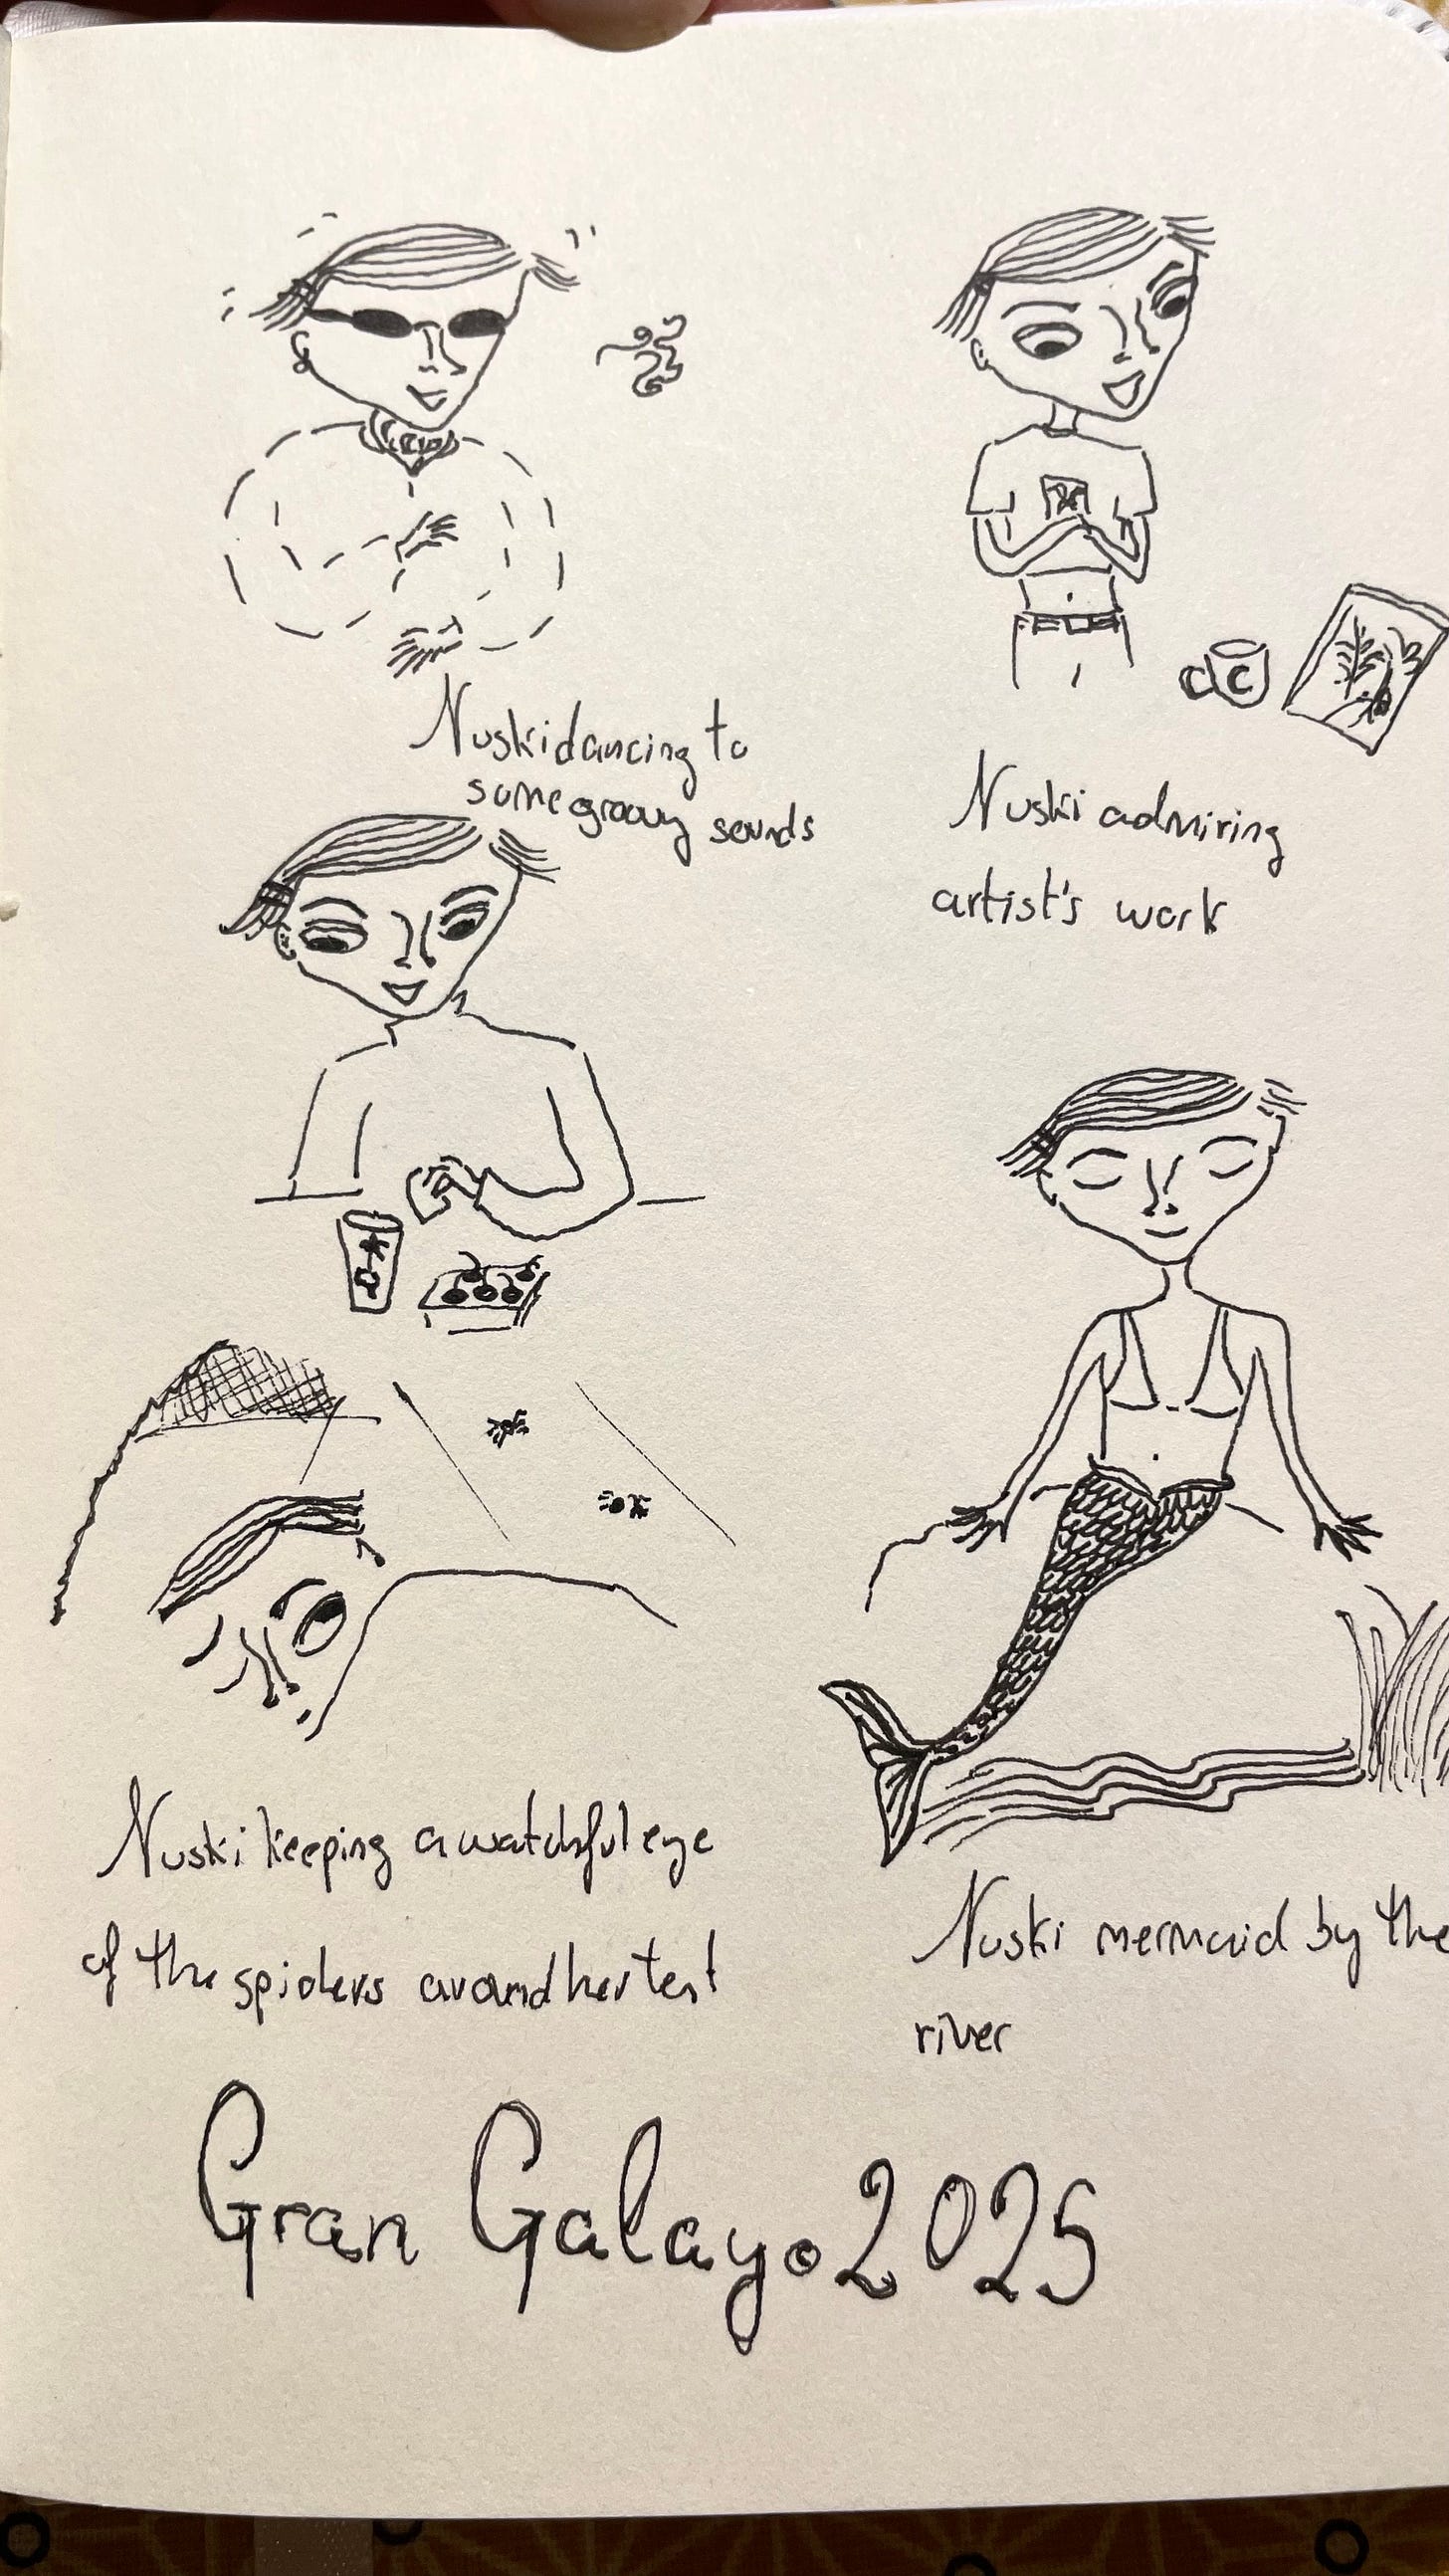 Nuski dancing to
some groovy sounds
Nuski admiring
artist's work
C
Nuski keeping a watchful eye
of the spiders around her tent
Nuski mermaid by the
river
Gran Galayo 2025